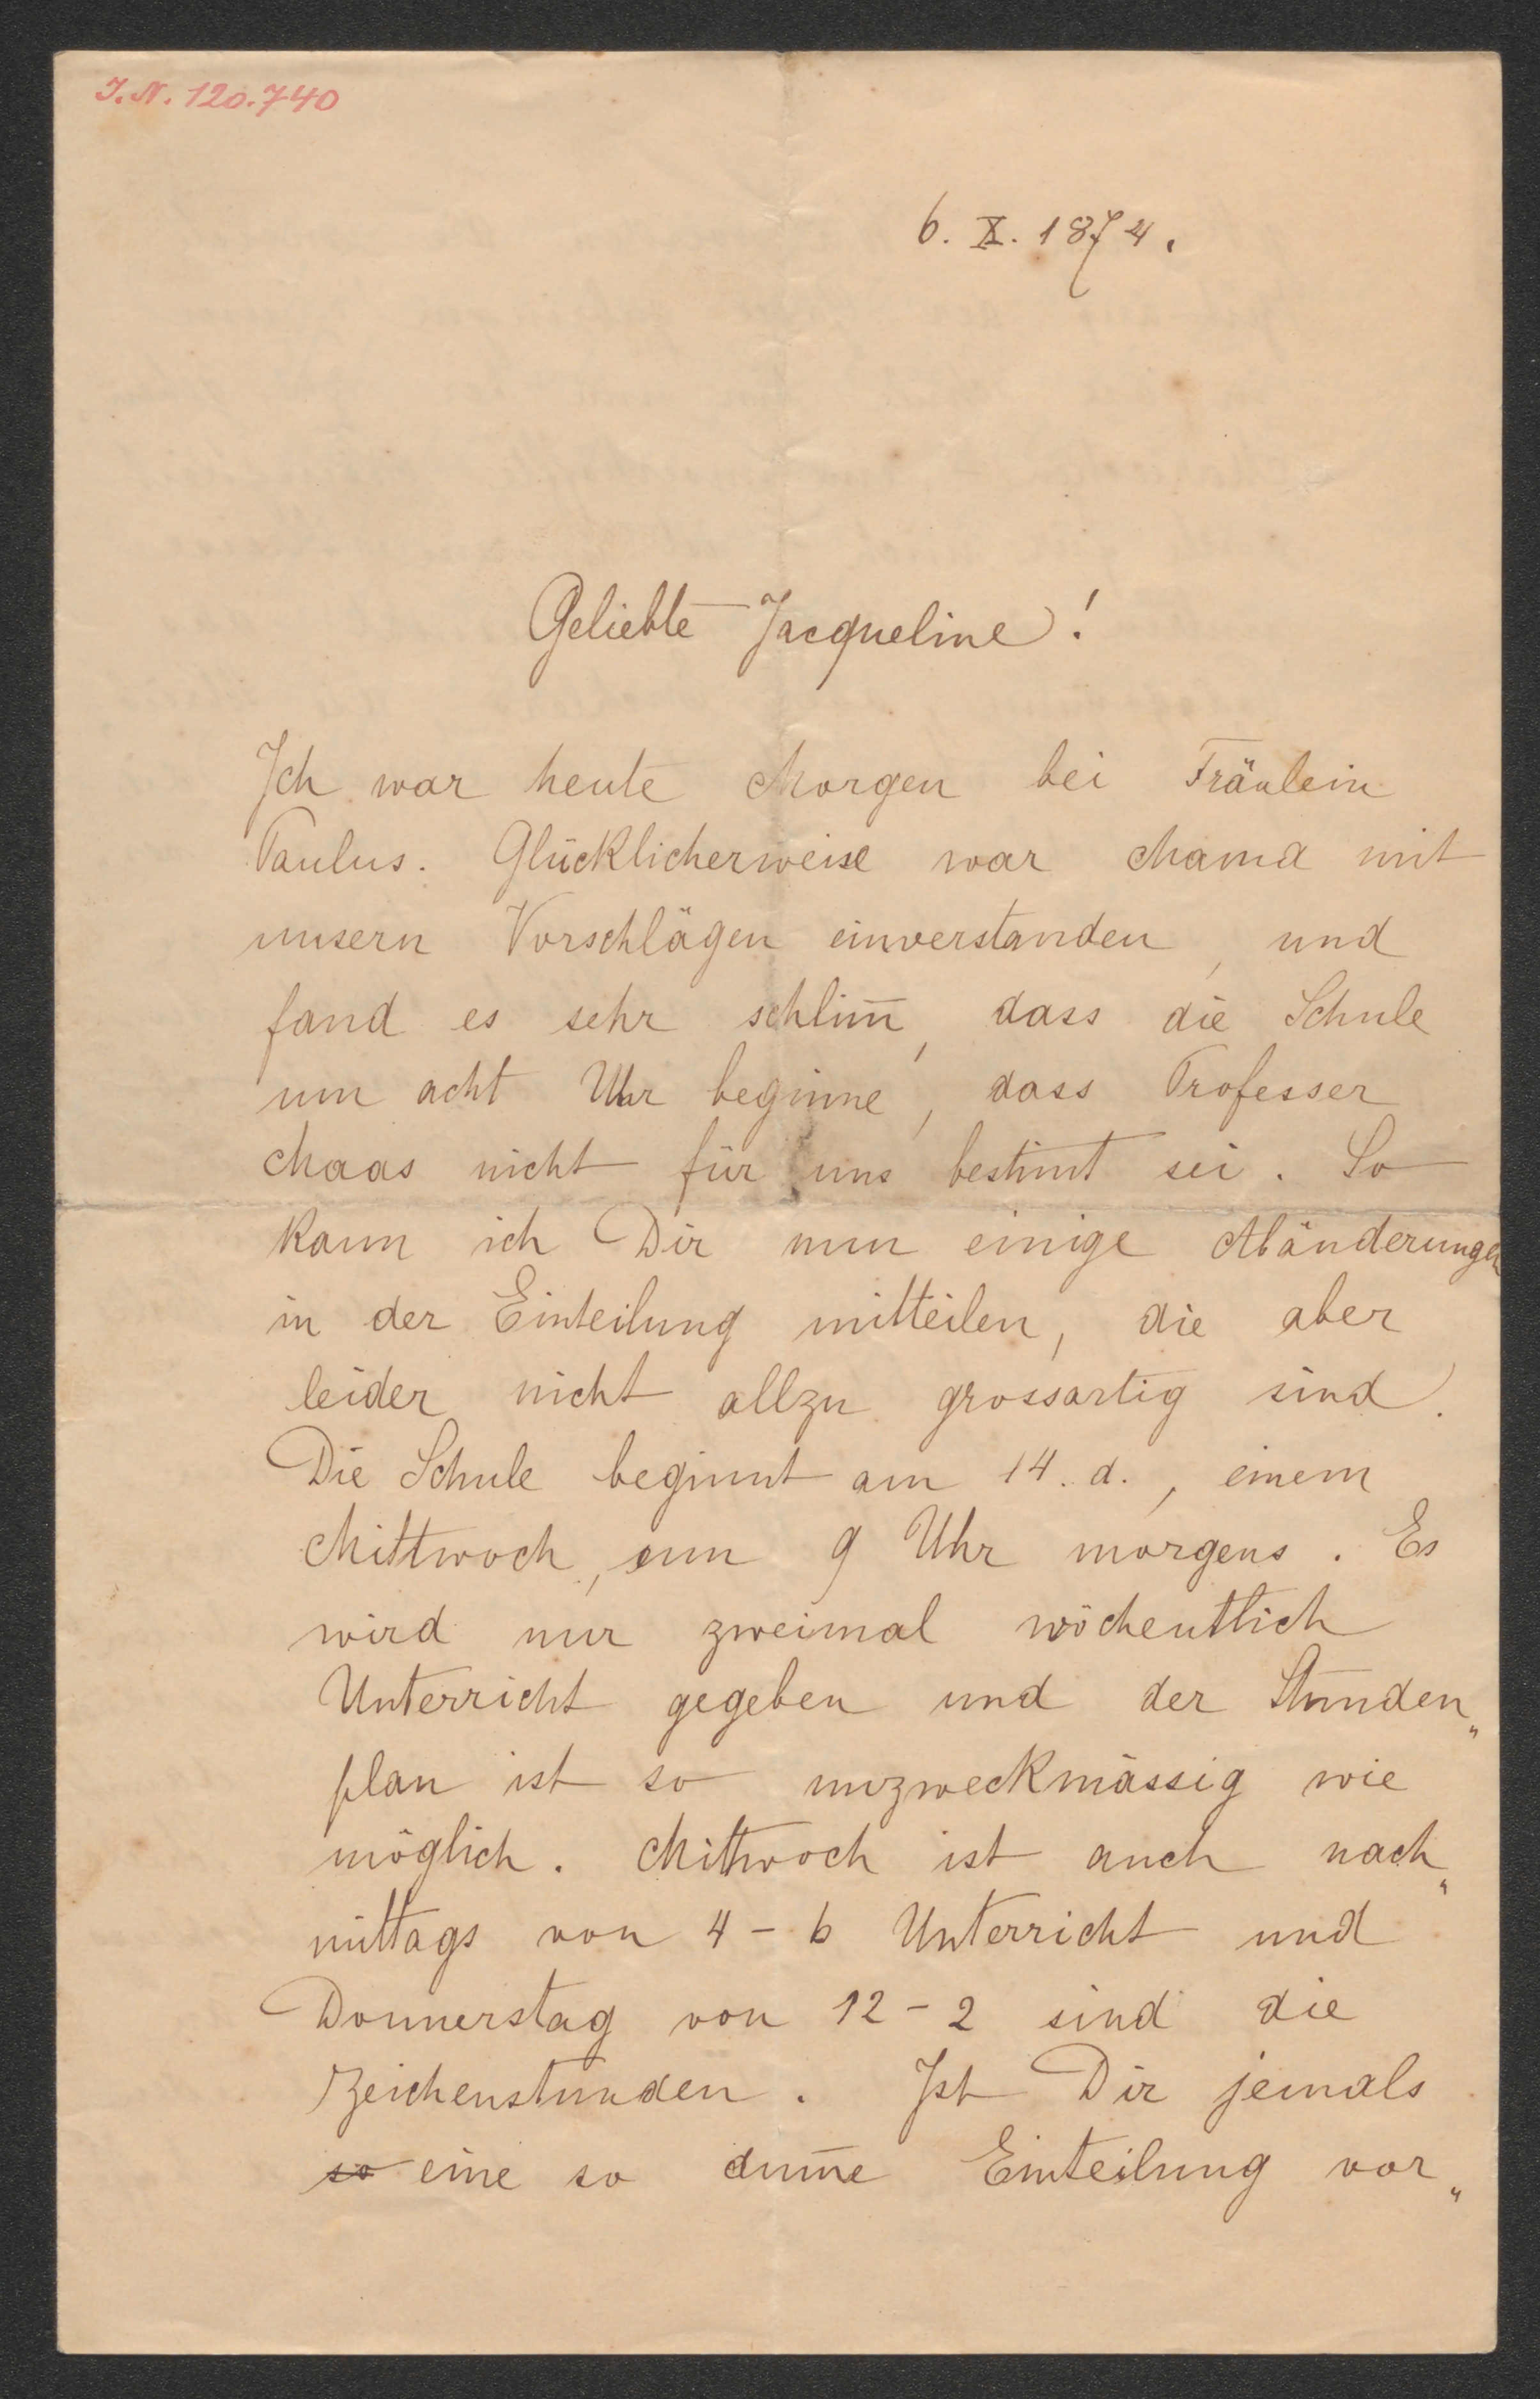 I.N. 120.740
6. X. 1874.
Geliebte Jacqueline!
Ich war heute Morgen bei Fräulein
Paulus. Glücklicherweise war Mama mit
unsern Vorschlägen einverstanden, und
fand es sehr schlim̅, dass die Schule
um acht Uhr beginne, dass Professer
Maas nicht für uns bestim̅t sei. So
kann ich Dir nun einige Abänderungen
in der Einteilung mitteilen, die aber
leider nicht allzu grossartig sind.
Die Schule beginnt am 14. d., einem
Mittwoch, um 9 Uhr morgens. Es
wird nur zweimal wöchentlich
Unterricht gegeben und der Stunden„
plan ist so unzweckmässig wie
möglich. Mittwoch ist auch nach„
mittags von 4 - 6 Unterricht und
Donnerstag von 12 - 2 sind die
Zeichenstunden. Ist Dir jemals
so eine so dum̅e Einteilung vor„